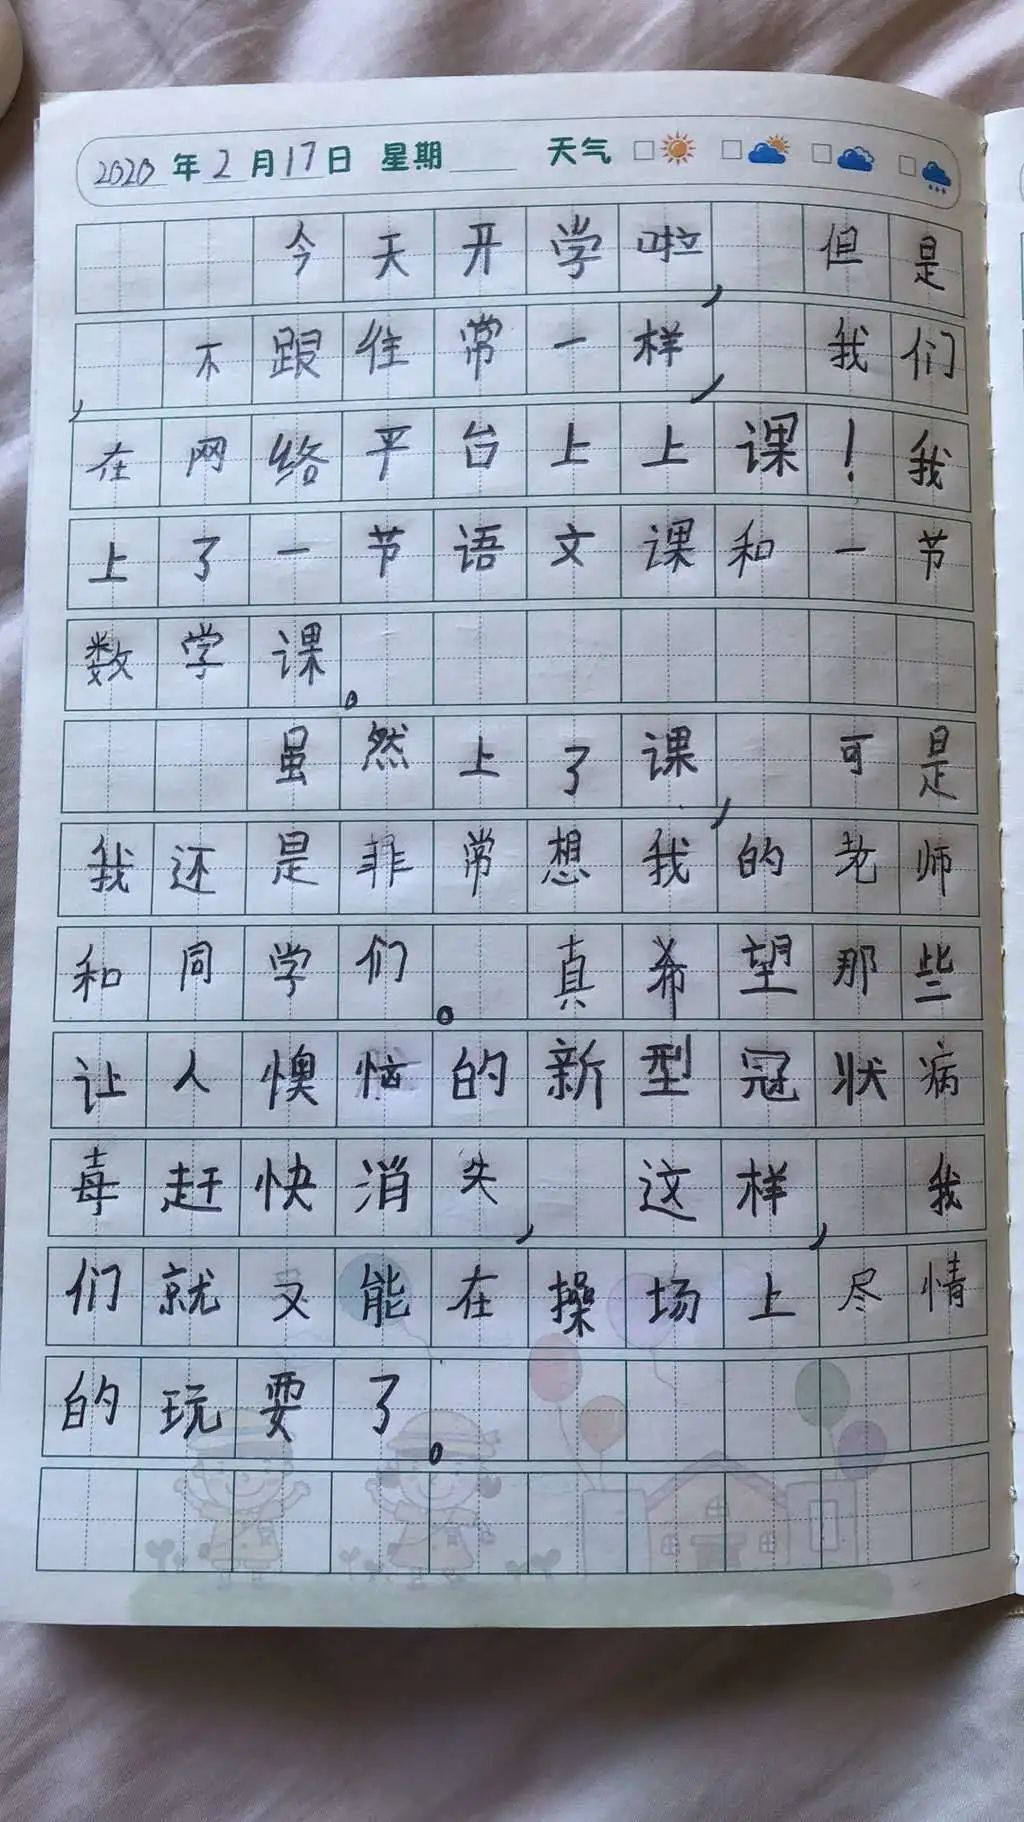 2020年2月17日 星期 天气
今天开学啦，但是
，不跟住常一样，我们
在网络平台上上课！我
上了一节语文课和一节
数学课。
虽然上了课，可是
我还是非常想我的老师
和同学们。真希望那些
让人懊恼的新型冠状病
毒赶快消失，这样，我
们就又能在操场上尽情
的玩耍了。